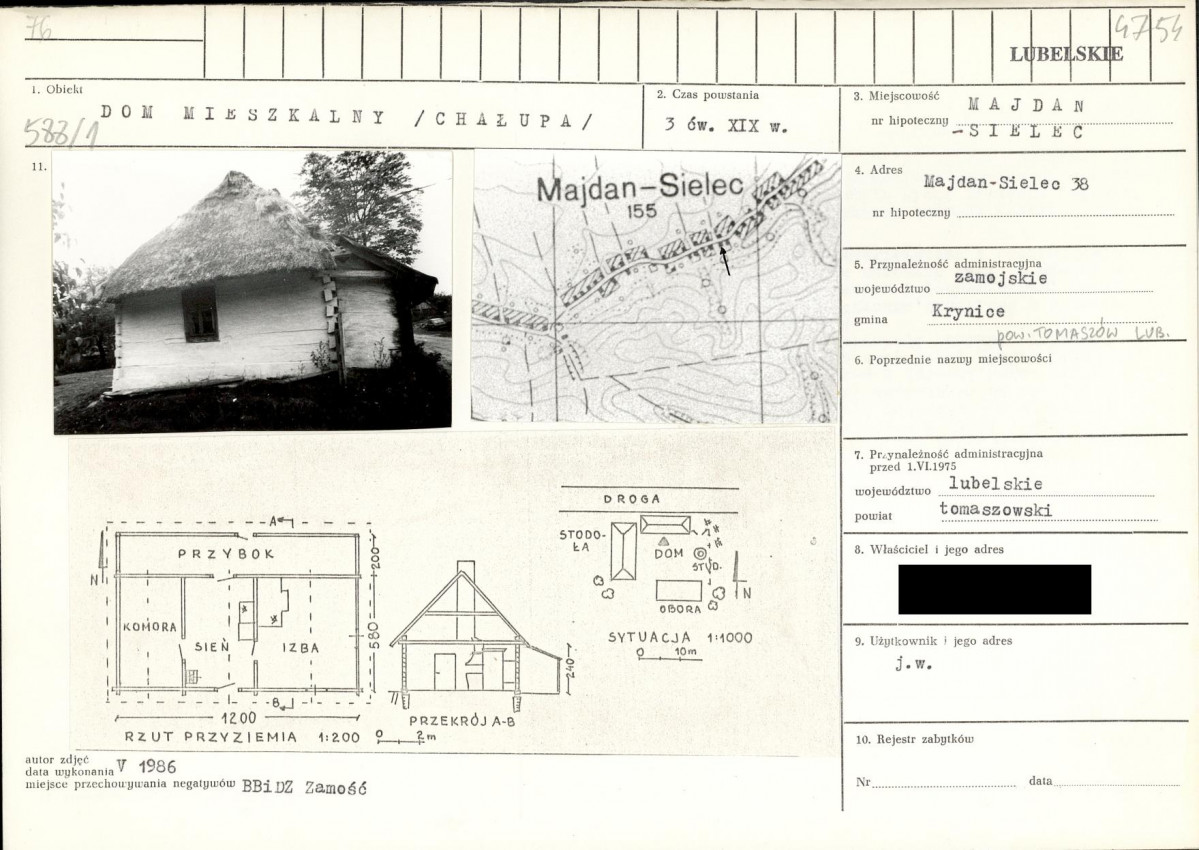 76
4754
LUBELSKIE
1. Obiekt
DOM MIESZKALNY /CHAŁUPA/
588/1
2. Czas powstania
3 ćw. XIX w.
3. Miejscowość
MAJDAN
nr hipoteczny
-SIELEC
11.
Majdan-Sielec
155
4. Adres
Majdan-Sielec 38
nr hipoteczny
5. Przynależność administracyjna
województwo zamojskie
gmina Krynice
pow. TOMASZÓW LUB.
6. Poprzednie nazwy miejscowości
7. Przynależność administracyjna
przed 1.VI.1975
województwo lubelskie
powiat tomaszowski
8. Właściciel i jego adres
9. Użytkownik i jego adres
j.w.
10. Rejestr zabytków
Nr
data
A
PRZYBOK
200
N
KOMORA
SIEŃ
IZBA
580
B
1200
RZUT PRZYZIEMIA 1:200 0 2m
240
PRZEKRÓJ A-B
DROGA
STODO-
ŁA
DOM
STUD.
OBORA
N
SYTUACJA 1:1000
0 10m
autor zdjęć
data wykonania V 1986
miejsce przechowywania negatywów BBiDZ Zamość